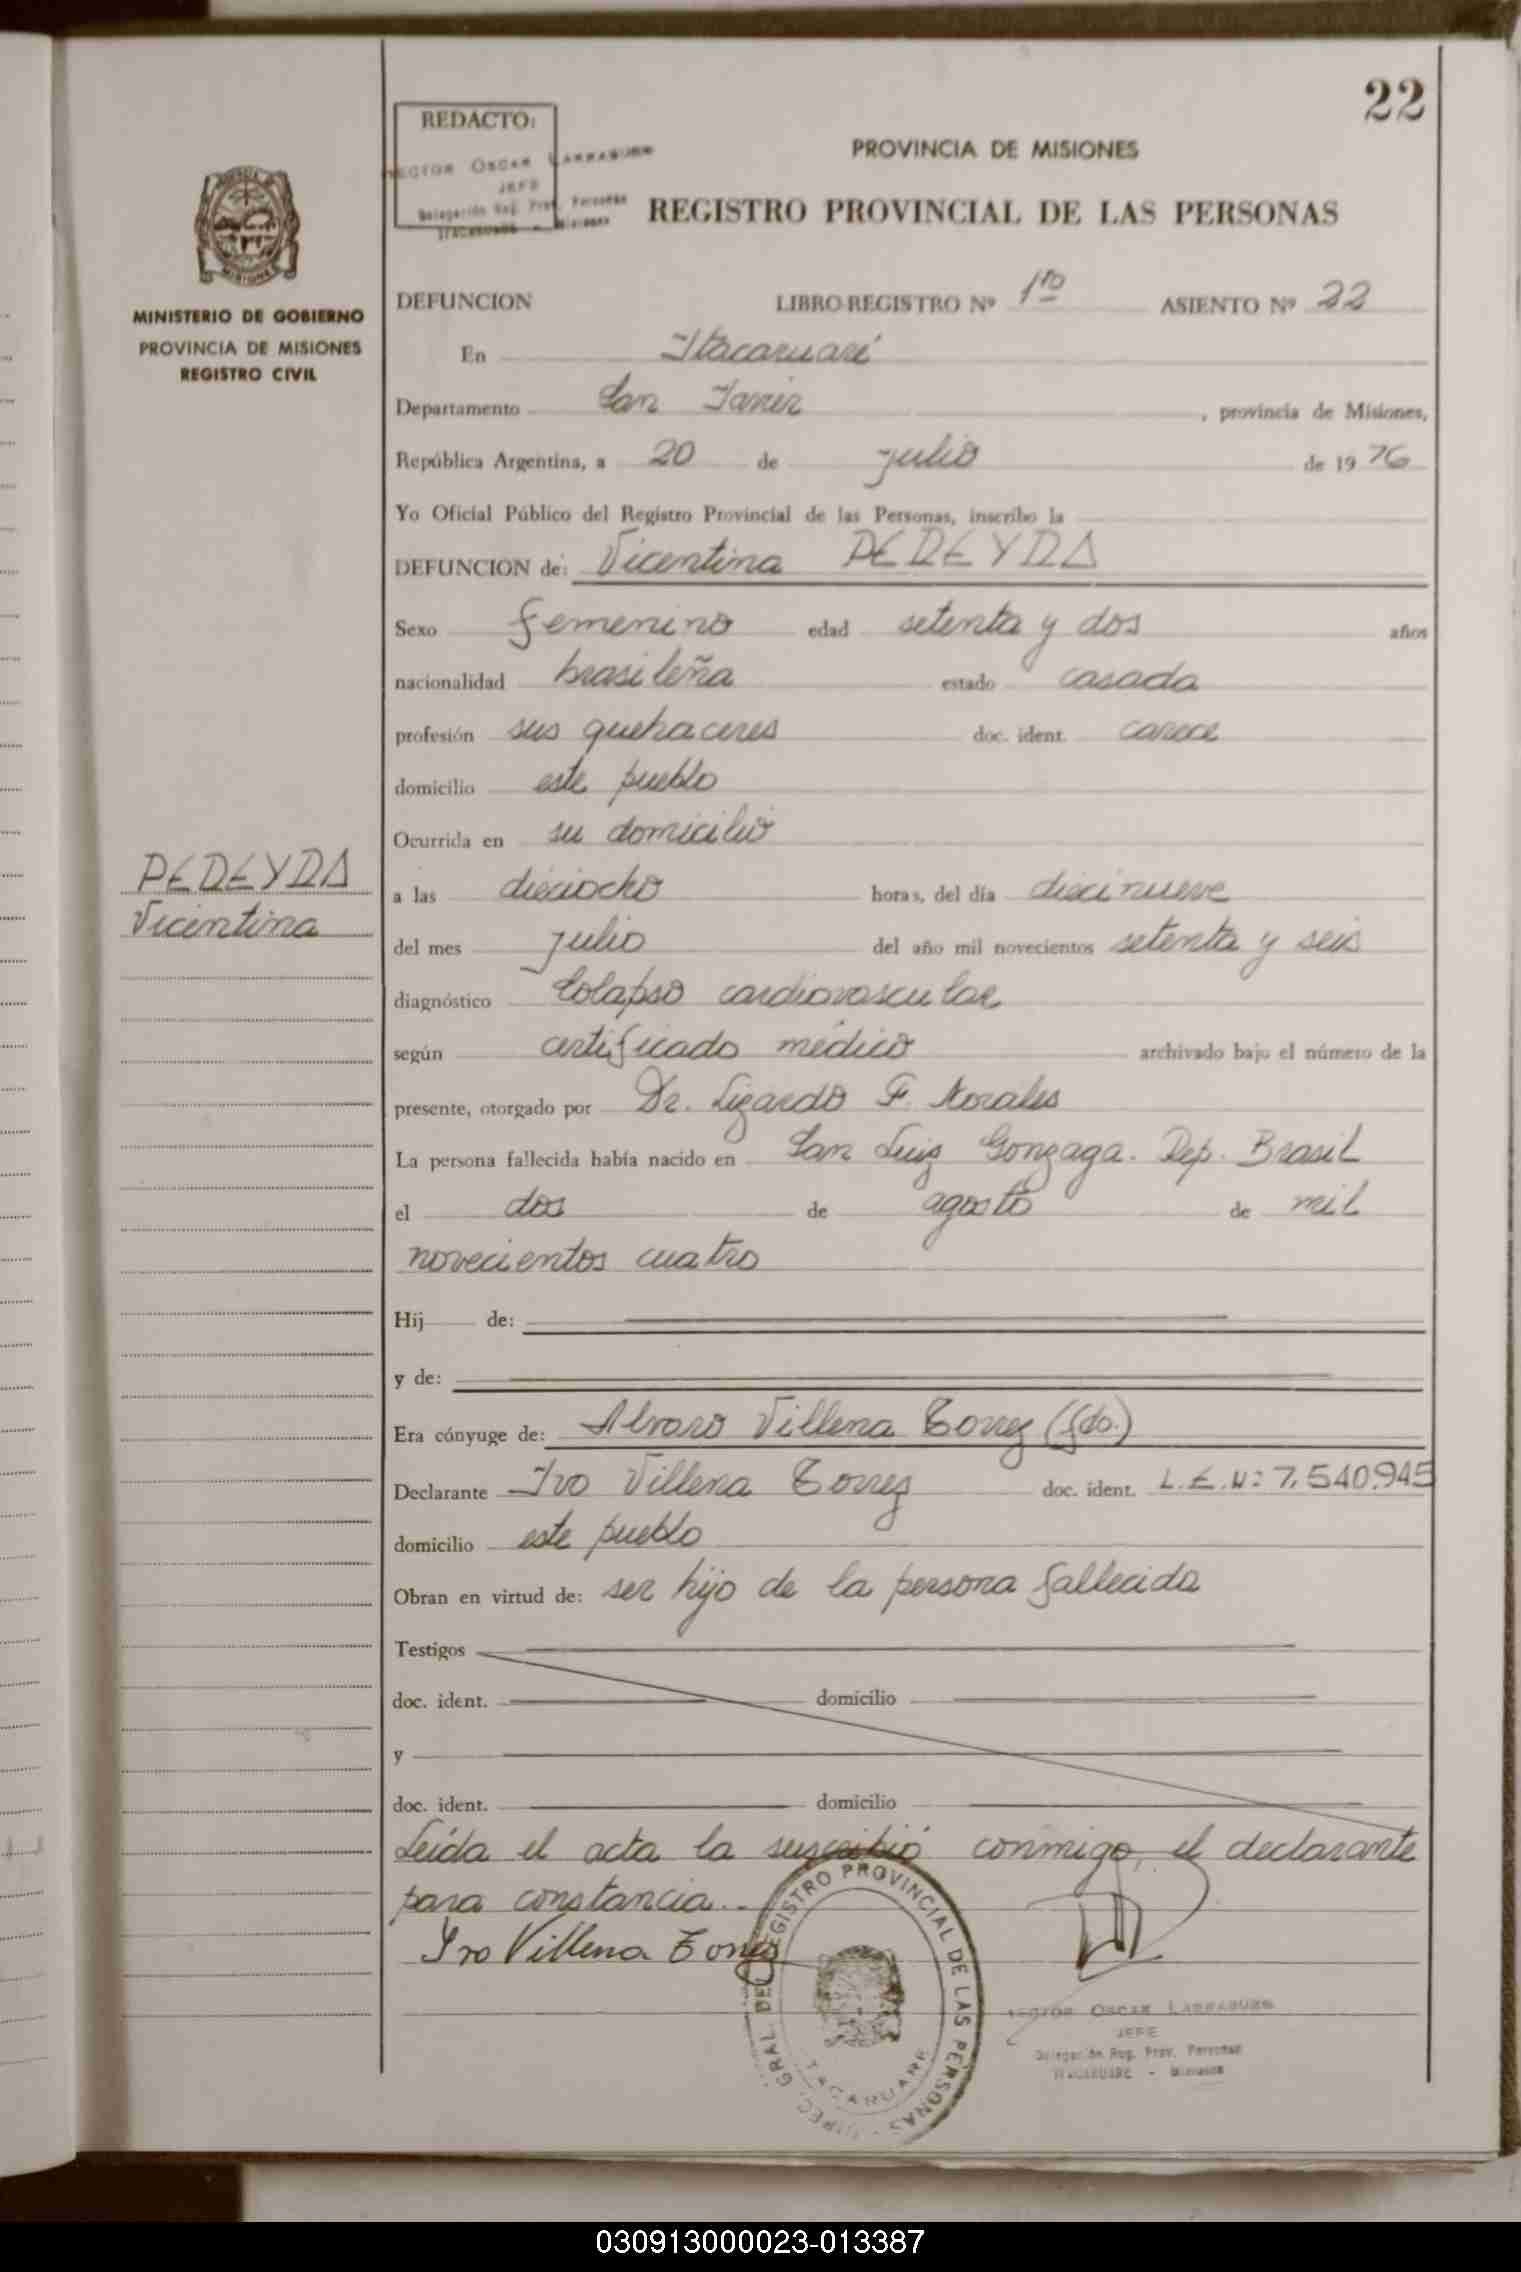 22
REDACTO:
HECTOR OSCAR LARRABURE
JEFE
Delegación Reg. Prov. Personas
ITACARUARE - Misiones
PROVINCIA DE MISIONES
REGISTRO PROVINCIAL DE LAS PERSONAS
MISIONES
MINISTERIO DE GOBIERNO
PROVINCIA DE MISIONES
REGISTRO CIVIL
DEFUNCION LIBRO-REGISTRO Nº 1ro ASIENTO Nº 22
En Itacaruaré
Departamento San Javier, provincia de Misiones,
República Argentina, a 20 de julio de 1976
Yo Oficial Público del Registro Provincial de las Personas, inscribo la
DEFUNCION de: Vicentina PEREYRA
Sexo femenino edad setenta y dos años
nacionalidad brasileña estado casada
profesión sus quehaceres doc. ident. carece
domicilio este pueblo
Ocurrida en su domicilio
PEREYRA
Vicentina
a las dieciocho horas, del día diecinueve
del mes julio del año mil novecientos setenta y seis
diagnóstico Colapso cardiovascular
según certificado médico archivado bajo el número de la
presente, otorgado por Dr. Lizardo F. Morales
La persona fallecida había nacido en San Luiz Gonzaga. Rep. Brasil
el dos de agosto de mil
novecientos cuatro
Hij de:
y de:
Era cónyuge de: Alvaro Villena Torrez (fdo.)
Declarante Ivo Villena Torrez doc. ident. L.E.Nº 7.540.945
domicilio este pueblo
Obran en virtud de: ser hijo de la persona fallecida
Testigos
doc. ident. domicilio
y
doc. ident. domicilio
Leída el acta la suscribió conmigo, el declarante
para constancia.
Ivo Villena Torres
DIREC. GRAL. DEL REGISTRO PROVINCIAL DE LAS PERSONAS
ITACARUARE
HECTOR OSCAR LARRABURE
JEFE
Delegación Reg. Prov. Personas
ITACARUARE - Misiones
030913000023-013387